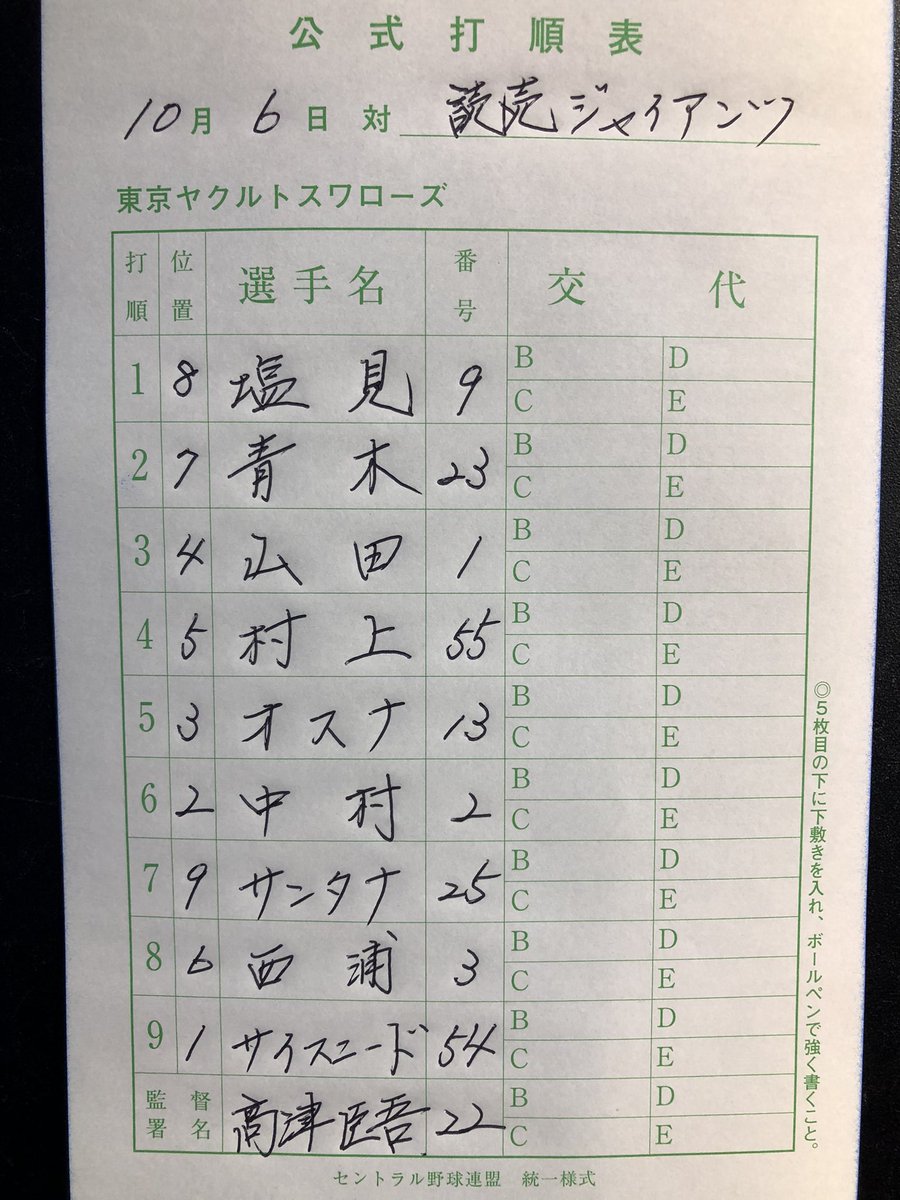 公式打順表
10月6日対 読売ジャイアンツ
東京ヤクルトスワローズ
打順 位置 選手名 番号 交代
1 8 塩見 9 B D
C E
2 7 青木 23 B D
C E
3 4 山田 1 B D
C E
4 5 村上 55 B D
C E
5 3 オスナ 13 B D
C E
6 2 中村 2 B D
C E
7 9 サンタナ 25 B D
C E
8 6 西浦 3 B D
C E
9 1 サイスニード 54 B D
C E
監督署名 高津臣吾 22 B D
C E
◎5枚目の下に下敷きを入れ、ボールペンで強く書くこと。
セントラル野球連盟 統一様式